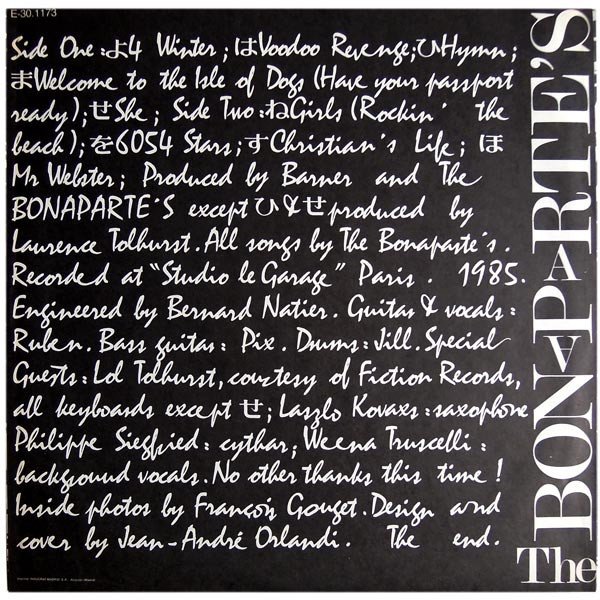 E-30.1173
Side One:よ4 Winter; はVoodoo Revenge;ひHymn;
まWelcome to the Isle of Dogs (Have your passport
ready);せShe; Side Two:ねGirls (Rockin' the
beach);を6054 Stars;すChristian's Life; ほ
Mr Webster; Produced by Barner and The
BONAPARTE'S except ひ&せproduced by
Laurence Tolhurst. All songs by The Bonaparte's.
Recorded at "Studio le Garage" Paris. 1985.
Engineered by Bernard Natier. Guitar & vocals:
Ruben. Bass guitar: Pix. Drums: Jill. Special
Guests: Lol Tolhurst, courtesy of Fiction Records,
all keyboards except せ; Laszlo Kovaxs: saxophone
Philippe Siegfried: cythar; Weena Truscelli:
background vocals. No other thanks this time!
Inside photos by François Gouget. Design and
cover by Jean-André Orlandi. The end.
The BONAPARTE'S